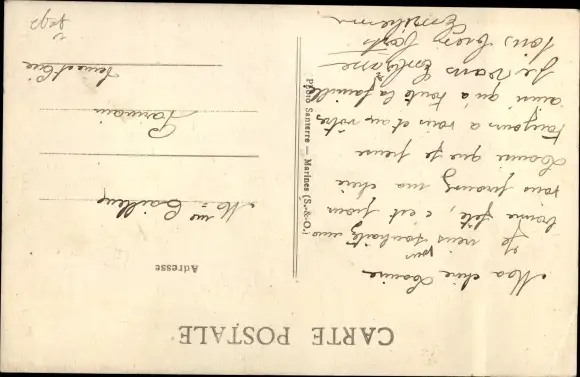 CARTE POSTALE
Ma chère Louise
Je viens vous souhaitez une
bonne fête, c'est pour
vous prouvez ma chère
Louise que je pense
toujours a vous et aux vôtres
ainsi qu'a toute la famille
Je vous Embrasse
tous bien forts
Photo Santerre — Marines (S.-&-O.)
Adresse
Parmain
Seine et Oise